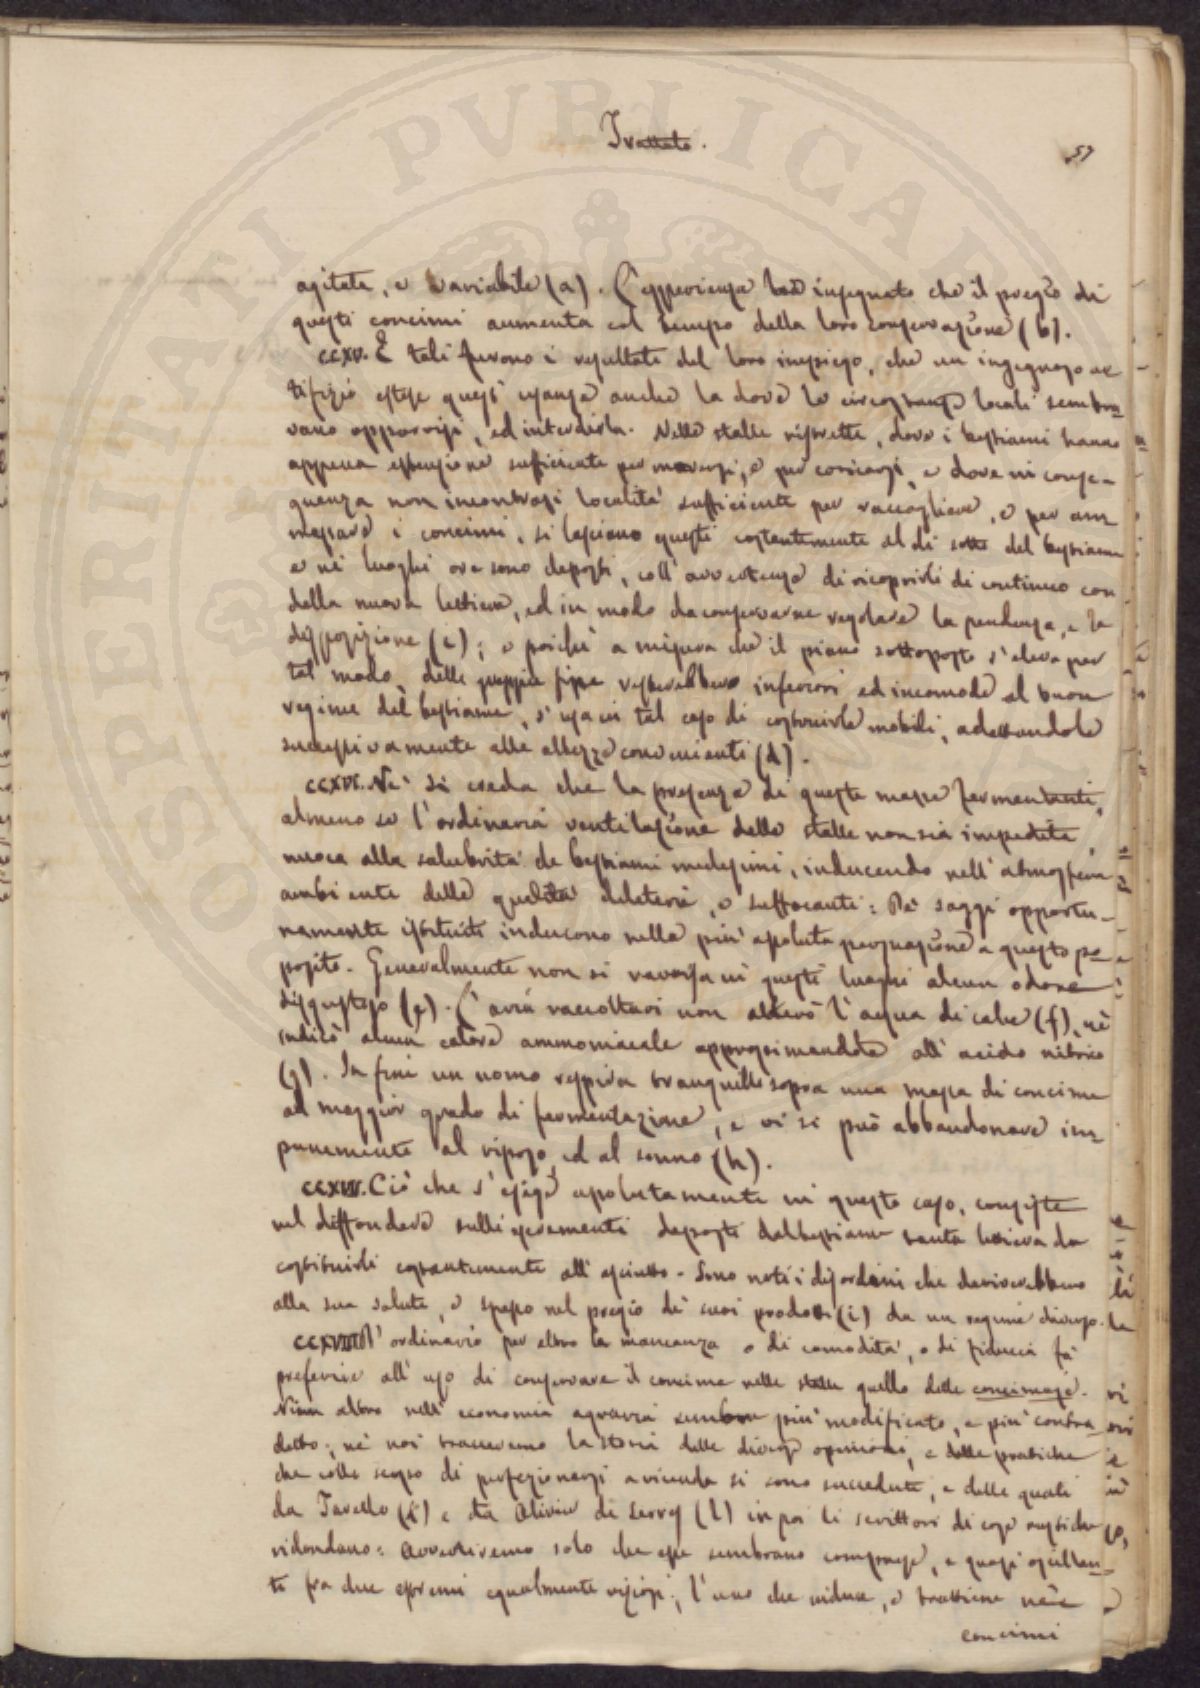 Trattato.
57
agitata, e variabile (a). L'esperienza ha insegnato che il pregio di
questi concimi aumenta col tempo della loro conservazione (b).
CCXV. E tali furono i resultati del loro impiego, che un ingegnoso ar
tifizio estese quest'usanza anche la dove le circostanze locali sembra
vano opporvisi, ed interdirla. Nelle stalle ristrette, dove i bestiami hanno
appena estensione sufficiente per muoversi, e per coricarsi, e dove in conse-
guenza non incontrasi località sufficiente per raccogliere, e per am
massare i concimi, si lasciano questi costantemente al di sotto del bestiame
e ne' luoghi ove sono deposti, coll'avvertenza di ricoprirli di continuo con
della nuova lettiera, ed in modo da conservarne regolare la pendenza, e la
disposizione (c); e poichè a misura che il piano sottoposto s'eleva per
tal modo, delle greppie fisse resterebbero inferiori ed incomode al buon
regime del bestiame, s'usa in tal caso di costruirle mobili, adattandole
successivamente alle altezze convenienti (d).
CCXVI. Nè si creda che la presenza di queste masse fermentanti,
almeno se l'ordinaria ventilazione delle stalle non sia impedita,
nuoca alla salubrità de bestiami medesimi, inducendo nell'atmosfera
ambiente delle qualità deleterie, e suffocanti: De' saggi opportu-
namente istituiti inducono nella più assoluta persuasione a questo pro
posito. Generalmente non si ravvisa in questi luoghi alcun odore
disgustoso (e). L'aria raccoltavi non alterò l'acqua di calce (f), nè
indicò alcun vapore ammoniacale approssimandola all'acido nitrico
(g). In fine un uomo respira tranquillo sopra una massa di concime
al maggior grado di fermentazione, e vi si può abbandonare im
punemente al riposo, ed al sonno (h).
CCXVII. Ciò che s'esige assolutamente in questo caso, consiste
nel diffondere sulli escrementi deposti dal bestiame tanta lettiera da
costituirli costantemente all'asciutto. Sono noti i disordini che deriverebbero
alla sua salute, e spesso nel pregio de' suoi prodotti (i) da un regime diverso.
CCXVIII. D'ordinario per altro la mancanza o di comodità, o di fiducia fà
preferire all'uso di conservare il concime nelle stalle quello delle concimaje.
Niun altro nell'economia agraria sembra più modificato, e più contra
detto; nè noi tracceremo la storia delle diverse opinioni, e delle pratiche
che collo scopo di perfezionarsi a vicenda si sono succedute, e delle quali
da Tarello (k) e da Olivier de Serres (l) in poi li scrittori di cose rustiche
ridondano: Avvertiremo solo che esse sembrano comprese, e quasi oscillan-
ti fra due estremi egualmente viziosi; l'uno che induce, e trattiene ne'
concimi